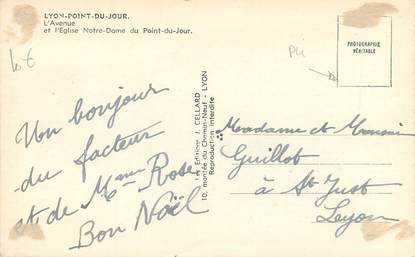 LYON-POINT-DU-JOUR.
L'Avenue
et l'Eglise Notre-Dame du Point-du-Jour.
10 €
Un bonjour
du facteur
et de Mme Rose
Bon Noël
Editions J. CELLARD
10, montée du Chemin-Neuf - LYON
Reproduction interdite
PHOTOGRAPHIE
VÉRITABLE
Madame et Monsieur
Guillot
à St Just
Lyon